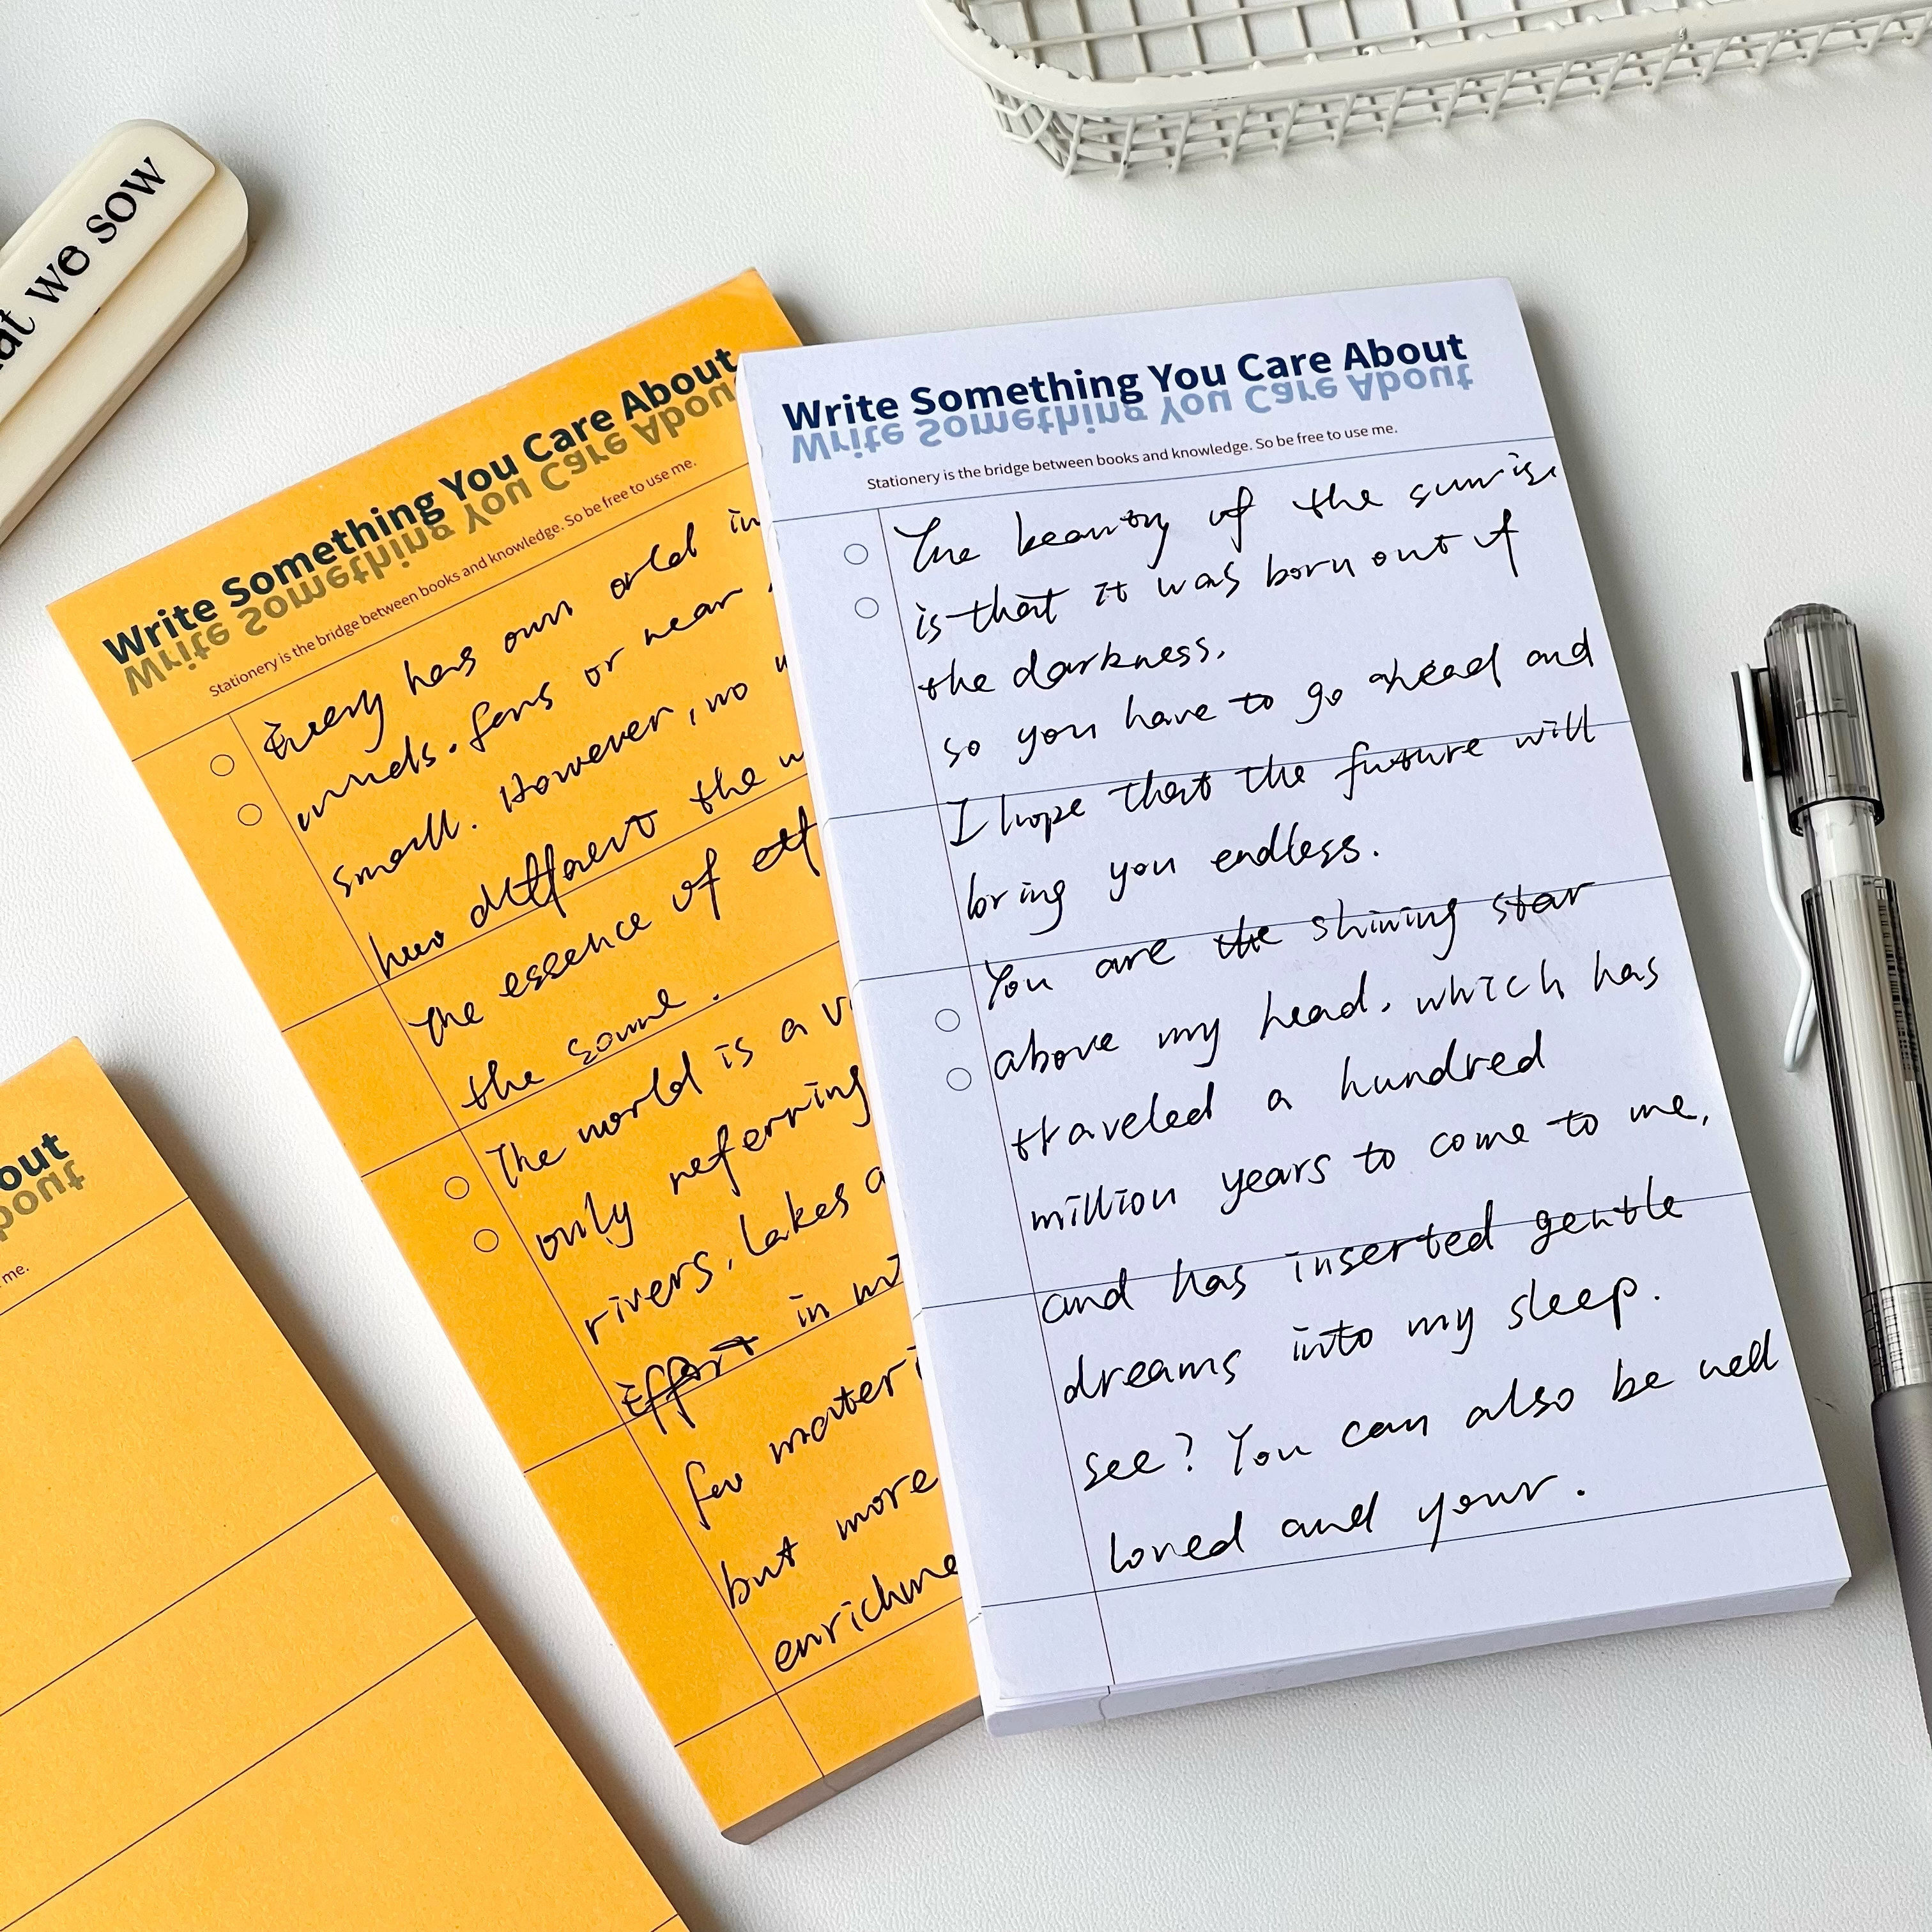 at we sow
Write Something You Care About
Write Something You Care About
Stationery is the bridge between books and knowledge. So be free to use me.
Every has own orld in
minds. fans or near
small. However, no
how different the w
the essence of
the same.
The world is a v
only referring
rivers, lakes a
Effort in
few materi
but more
enrichme
Write Something You Care About
Write Something You Care About
Stationery is the bridge between books and knowledge. So be free to use me.
The beauty of the sunrise
is that it was born out of
the darkness.
so you have to go ahead and
I hope that the future will
bring you endless.
You are the shining star
above my head. which has
traveled a hundred
million years to come to me,
and has inserted gentle
dreams into my sleep.
see? You can also be well
loved and your.
out
out
me.